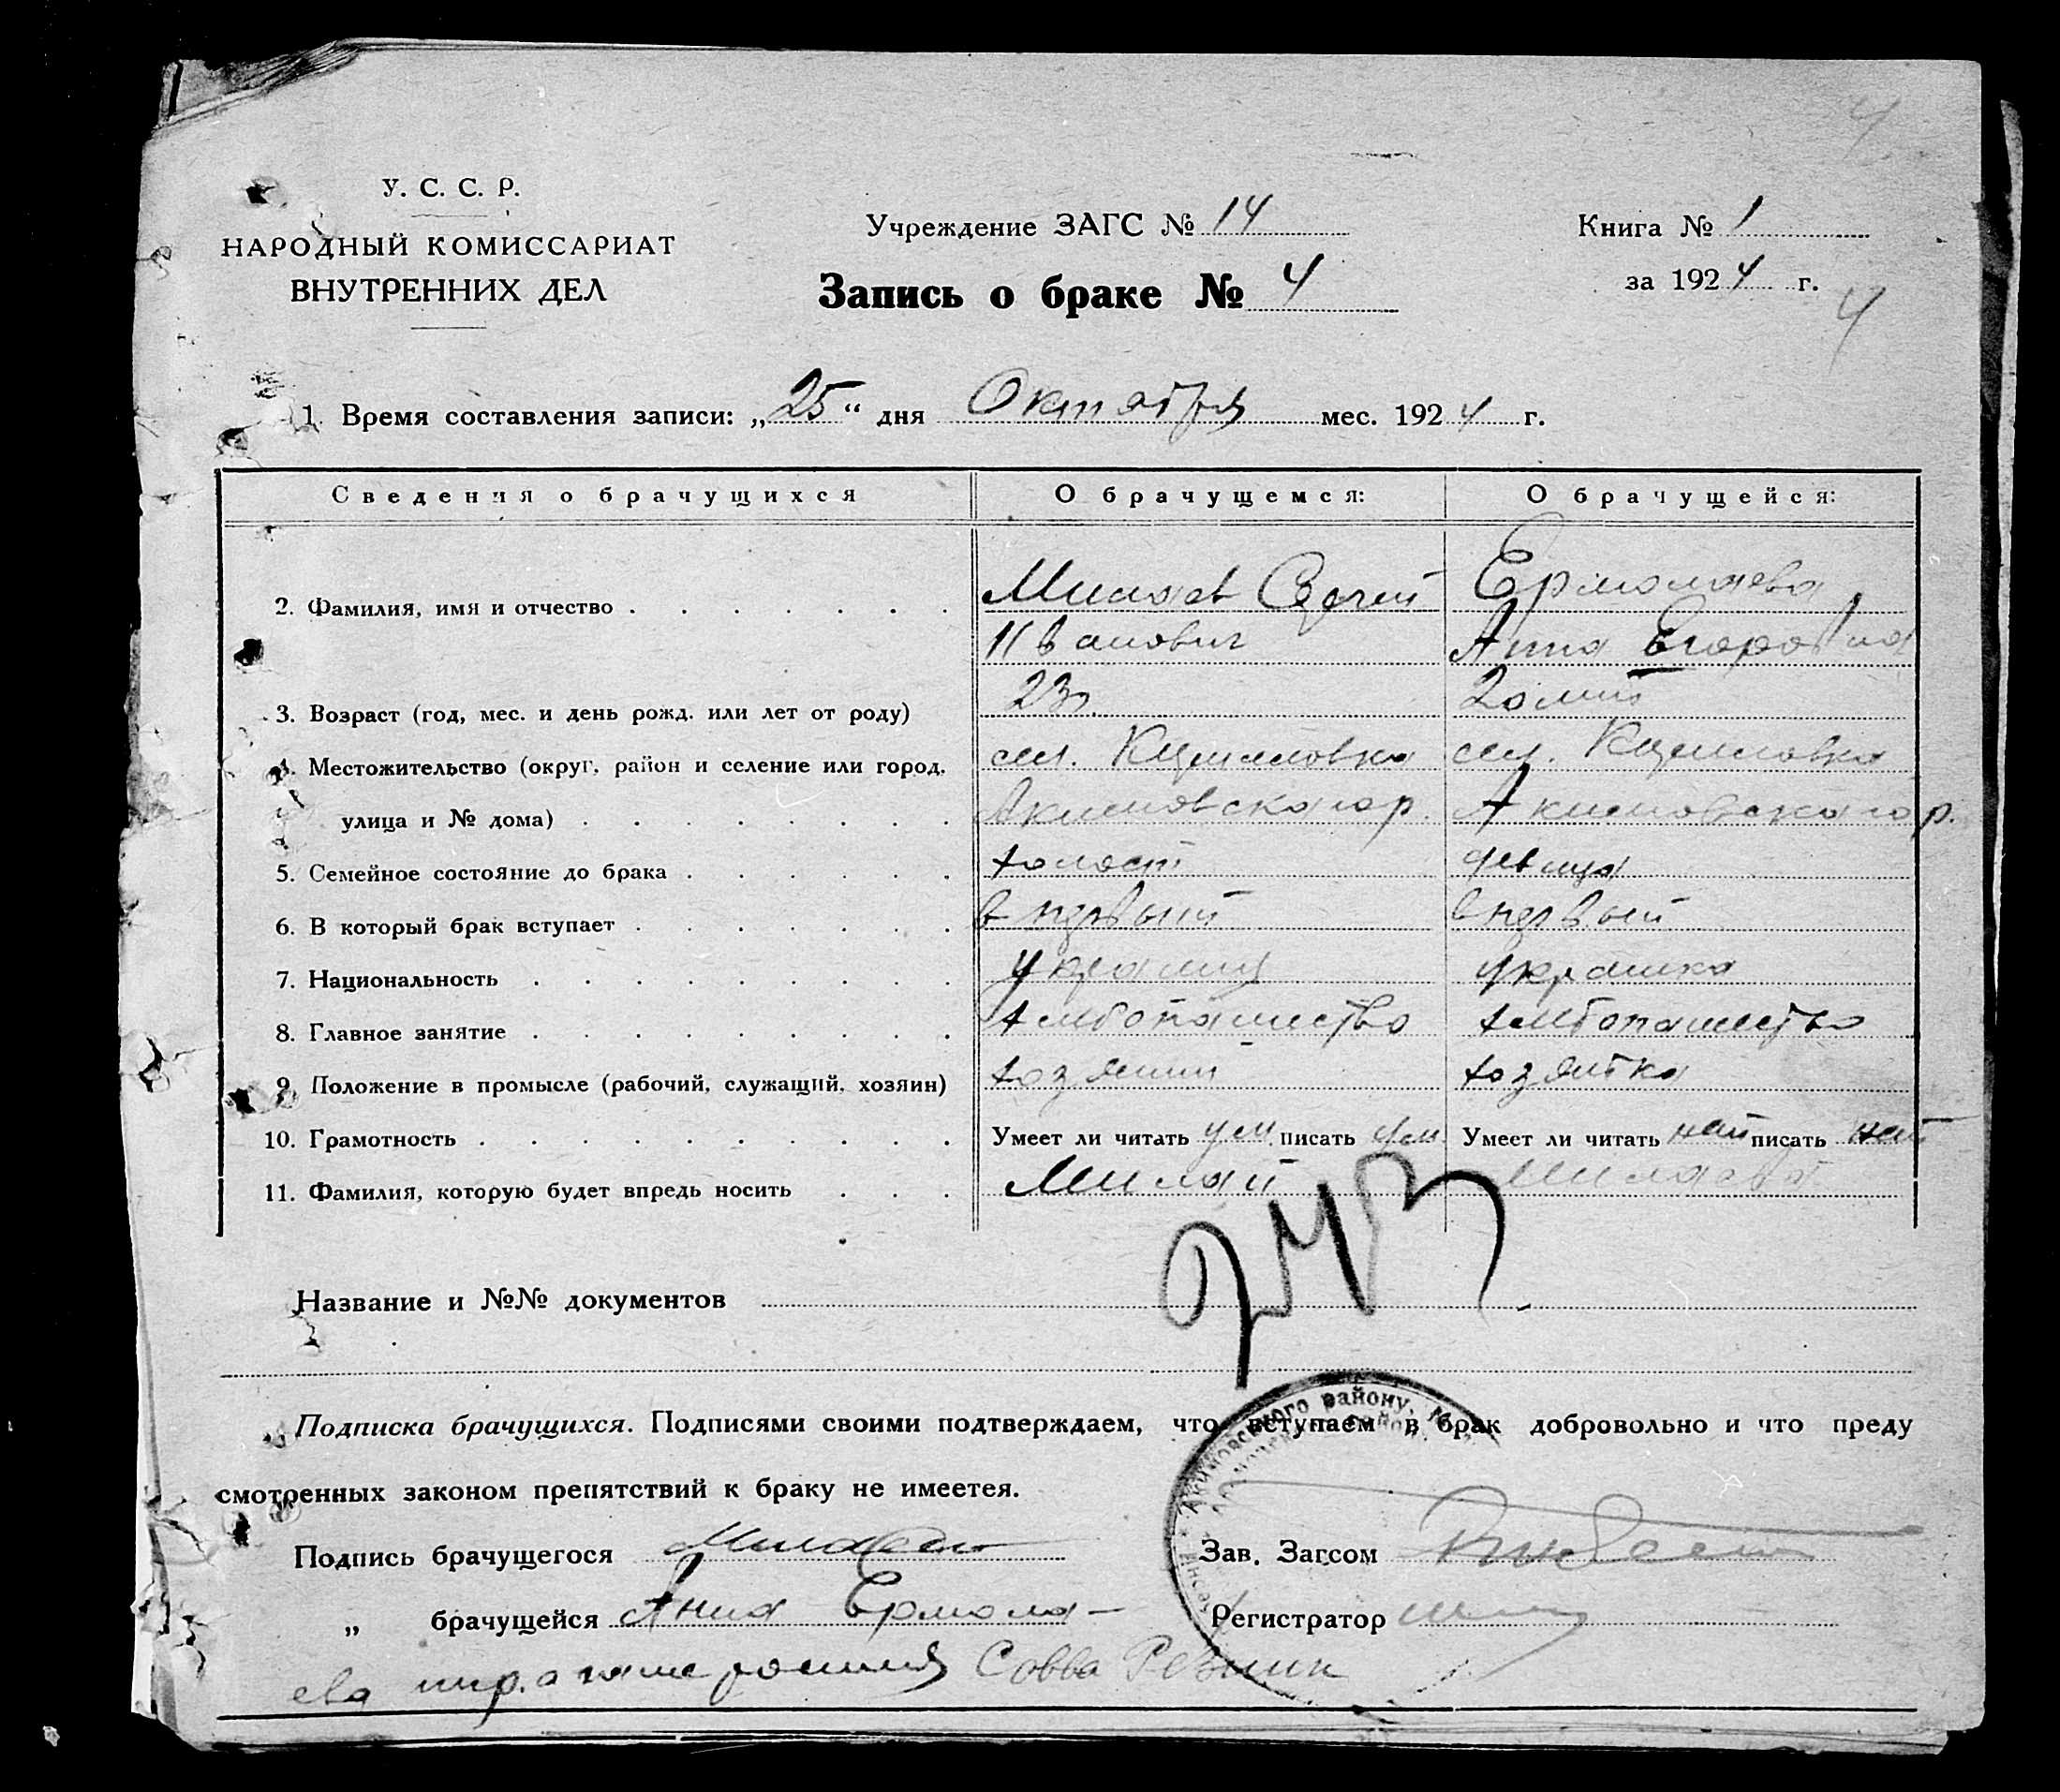 У. С. С. Р.
НАРОДНЫЙ КОМИССАРИАТ
ВНУТРЕННИХ ДЕЛ
Учреждение ЗАГС № 14
Запись о браке № 4
Книга № 1
за 1924 г.
4
1. Время составления записи: „25“ дня Октября мес. 1924 г.
Сведения о брачущихся О брачущемся: О брачущейся:
2. Фамилия, имя и отчество Милаев Сергей Ермолаева
Иванович Анна Егоровна
3. Возраст (год, мес. и день рожд. или лет от роду) 23 20 лет
4. Местожительство (округ, район и селение или город, сел. сел.
улица и № дома) Акимовского р. Акимовского р.
5. Семейное состояние до брака холост девица
6. В который брак вступает в первый в первый
7. Национальность украинец украинка
8. Главное занятие хлебопашество хлебопашество
9. Положение в промысле (рабочий, служащий, хозяин) хозяин хозяйка
10. Грамотность Умеет ли читать ум. писать ум. Умеет ли читать нет писать нет
11. Фамилия, которую будет впредь носить Милаев Милаева
243
Название и №№ документов
Подписка брачущихся. Подписями своими подтверждаем, что вступаем в брак добровольно и что преду
смотренных законом препятствий к браку не имеетея.
Акимовского району,
Подпись брачущегося Зав. Загсом
„ брачущейся Анна Ермола- Регистратор
ева Савва Резник